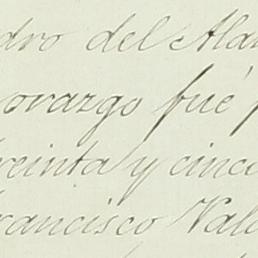 dro del Ala
orazgo fué
reinta y cinco
rancisco Val